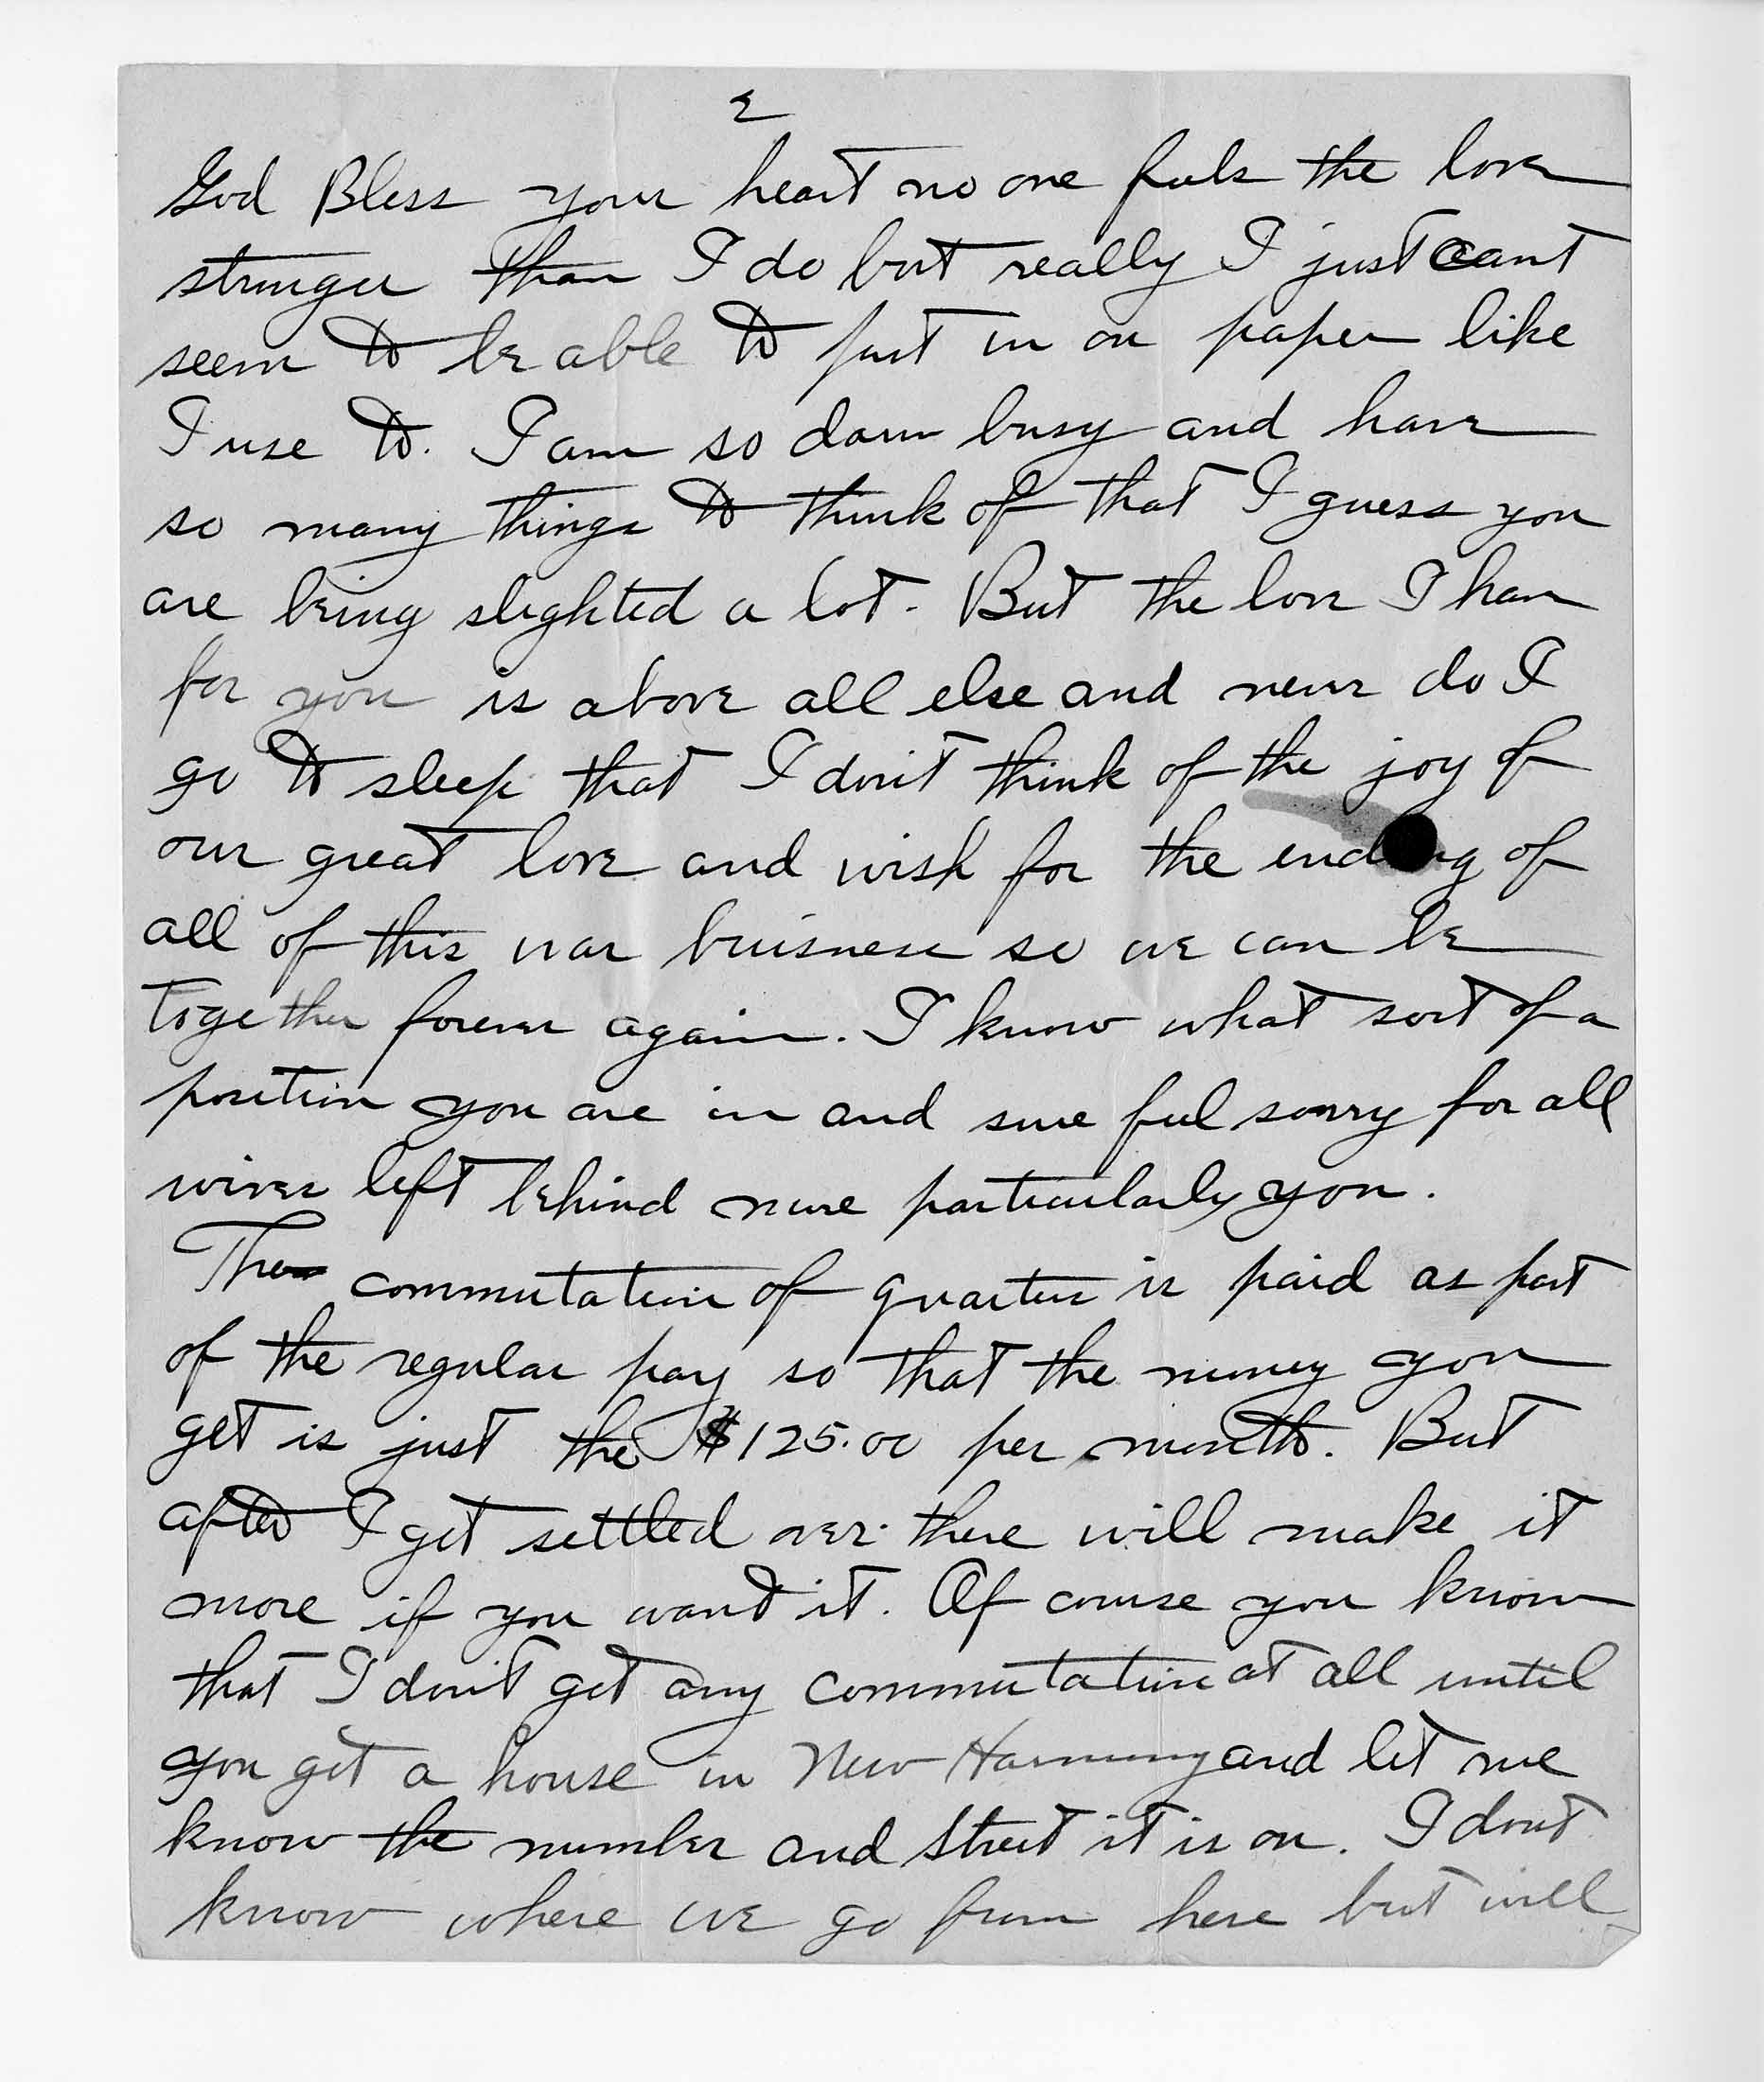 2
God Bless your heart no one feels the love
stronger than I do but really I just cant
seem to be able to put in on paper like
I use to. I am so darn busy and have
so many things to think of that I guess you
are being slighted a lot. But the love I have
for you is above all else and never do I
go to sleep that I don't think of the joy of
our great love and wish for the ending of
all of this war buisness so we can be
together forever again. I know what sort of a
position you are in and sure feel sorry for all
wives left behind more particularly you.
The commutation of quarters is paid as part
of the regular pay so that the money you
get is just the $125.00 per month. But
after I get settled over there will make it
more if you want it. Of course you know
that I don't get any commutation at all until
you get a house in New Harmony and let me
know the number and street it is on. I dont
know where we go from here but will